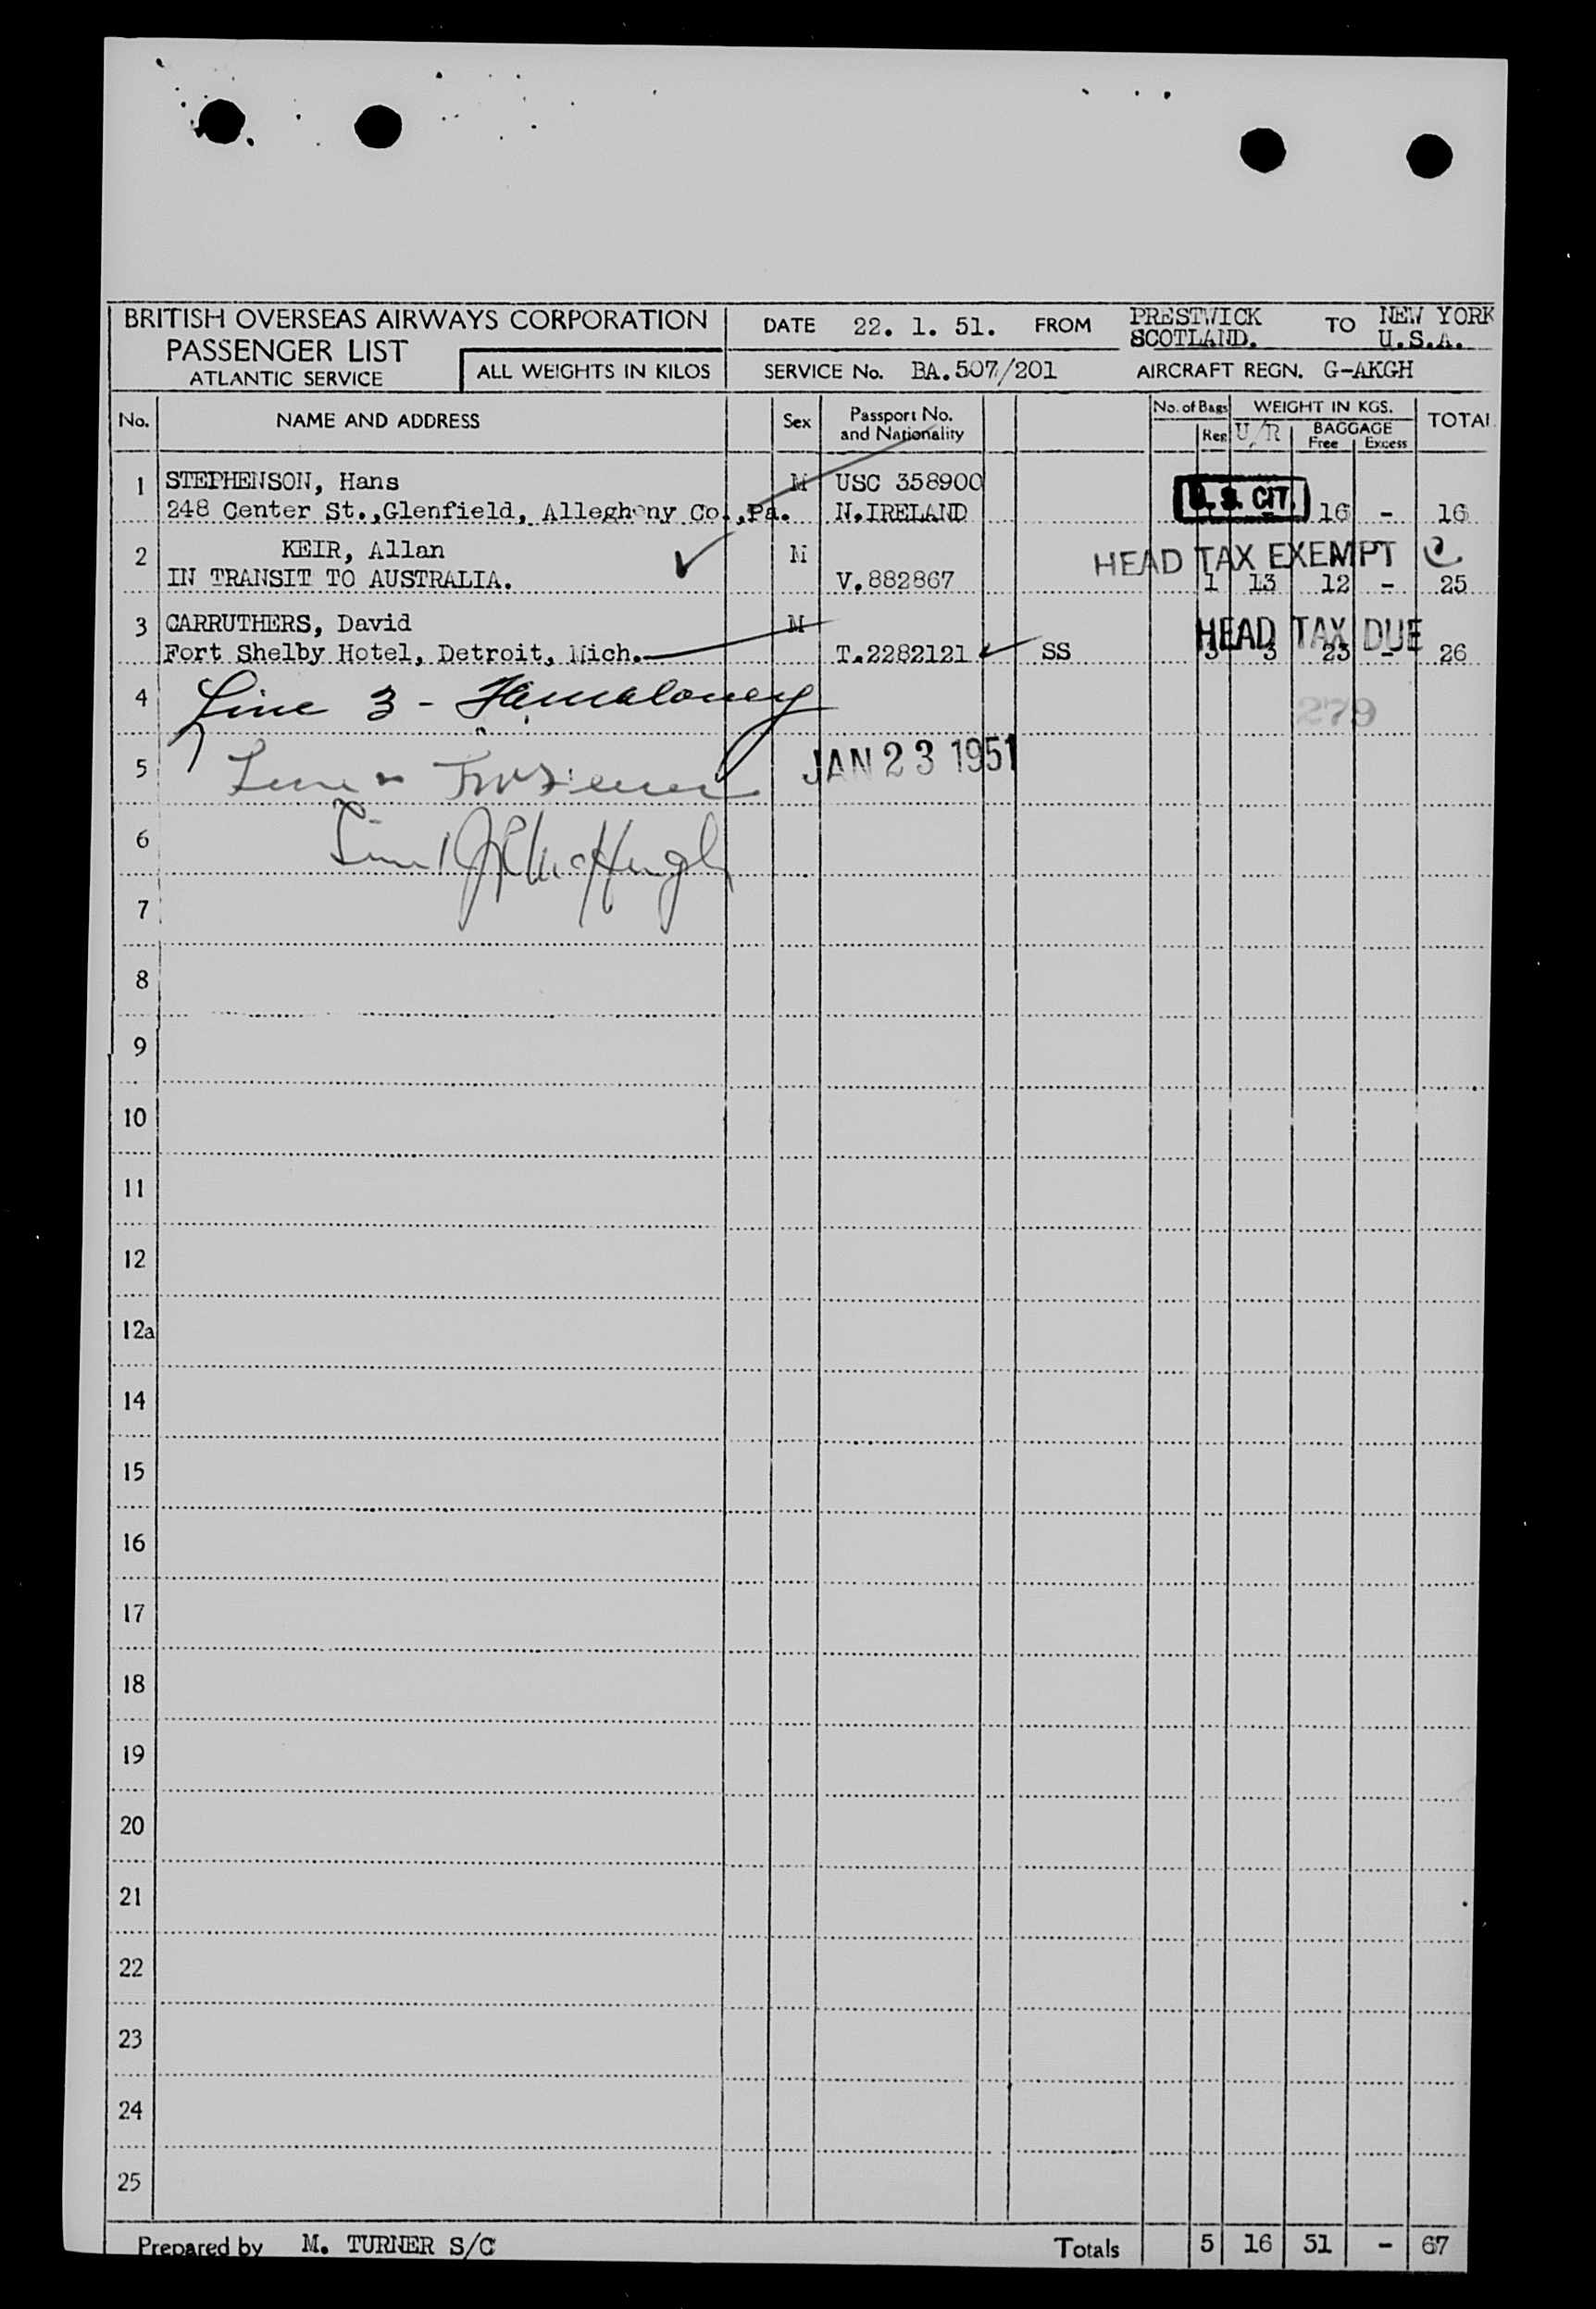 BRITISH OVERSEAS AIRWAYS CORPORATION
PASSENGER LIST
ATLANTIC SERVICE
ALL WEIGHTS IN KILOS
DATE 22. 1. 51. FROM PRESTWICK SCOTLAND. TO NEW YORK U.S.A.
SERVICE No. BA.507/201 AIRCRAFT REGN. G-AKGH
No. NAME AND ADDRESS Sex Passport No. and Nationality No. of Bags Reg U/R WEIGHT IN KGS. BAGGAGE Free Excess TOTAL
1 STEPHENSON, Hans M USC 358900 U.S. CIT.
248 Center St.,Glenfield, Allegheny Co.,Pa. N.IRELAND 16 - 16
2 KEIR, Allan M HEAD TAX EXEMPT
IN TRANSIT TO AUSTRALIA. V.882867 1 13 12 - 25
3 CARRUTHERS, David M HEAD TAX DUE
Fort Shelby Hotel, Detroit, Mich. T.2282121 SS 3 3 23 - 26
4 Line 3 - 279
5 Line JAN 23 1951
6 Line 1 McHugh
7
8
9
10
11
12
12a
14
15
16
17
18
19
20
21
22
23
24
25
Prepared by M. TURNER S/C Totals 5 16 51 - 67